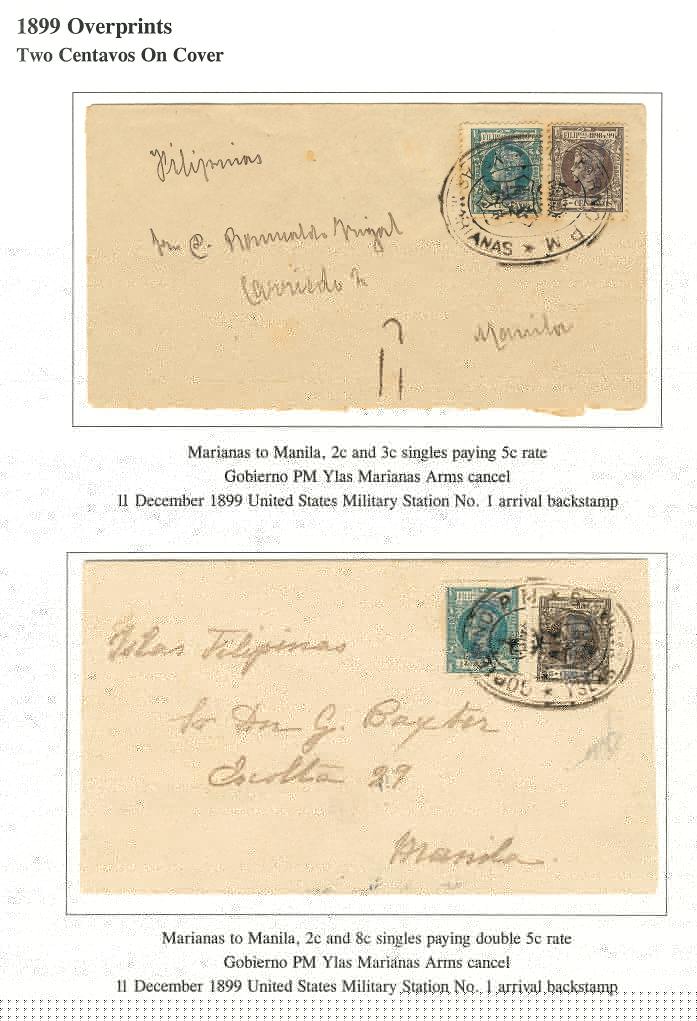 1899 Overprints
Two Centavos On Cover
Filipinas
FILIP.
FILIPas 1898 y 99
CENTAVOS
YLAS MARIANAS ★ P M
Carriedo
Manila
Marianas to Manila, 2c and 3c singles paying 5c rate
Gobierno PM Ylas Marianas Arms cancel
11 December 1899 United States Military Station No. 1 arrival backstamp
GOBIERNO P M
Islas Filipinas
Sr Dn G. Baxter
Escolta 29
Manila.
Marianas to Manila, 2c and 8c singles paying double 5c rate
Gobierno PM Ylas Marianas Arms cancel
11 December 1899 United States Military Station No. 1 arrival backstamp